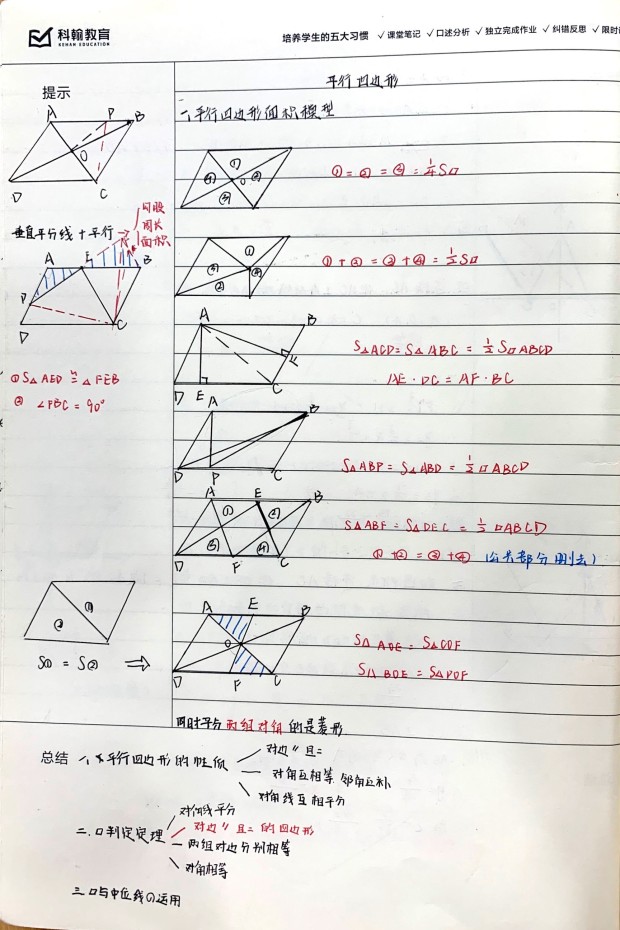 科翰教育
KEHAN EDUCATION
培养学生的五大习惯 ✓课堂笔记 ✓口述分析 ✓独立完成作业 ✓纠错反思 ✓限时
平行四边形
提示
一、平行四边形面积模型
A P B
O
D C
① ② ③ ④ O
①=②=④=¼S▱
垂直平分线+平行→
勾股
周长
面积
A E B
P
D C
① ② ③ ④
①+②=③+④=½S▱
①S△AED≌△FEB
②∠FBC=90°
A B
F
D E C
S△ACD=S△ABC=½S▱ABCD
AE·DC=AF·BC
A B
D P C
S△ABP=S△ABD=½▱ABCD
A E B
① ② ③ ④
D F C
S△ABF=S△DEC=½▱ABCD
①+②=③+④ (公共部分删去)
② ①
S①=S② ⇒
A E B
O
D F C
S△AOE=S△COF
S△BOE=S△DOF
同时平分两组对角的是菱形
总结 一、平行四边形的性质
对边∥且=
对角互相等 邻角互补
对角线互相平分
二、▱判定定理
对角线平分
对边∥且=的四边形
两组对边分别相等
对角相等
三、▱与中位线的运用